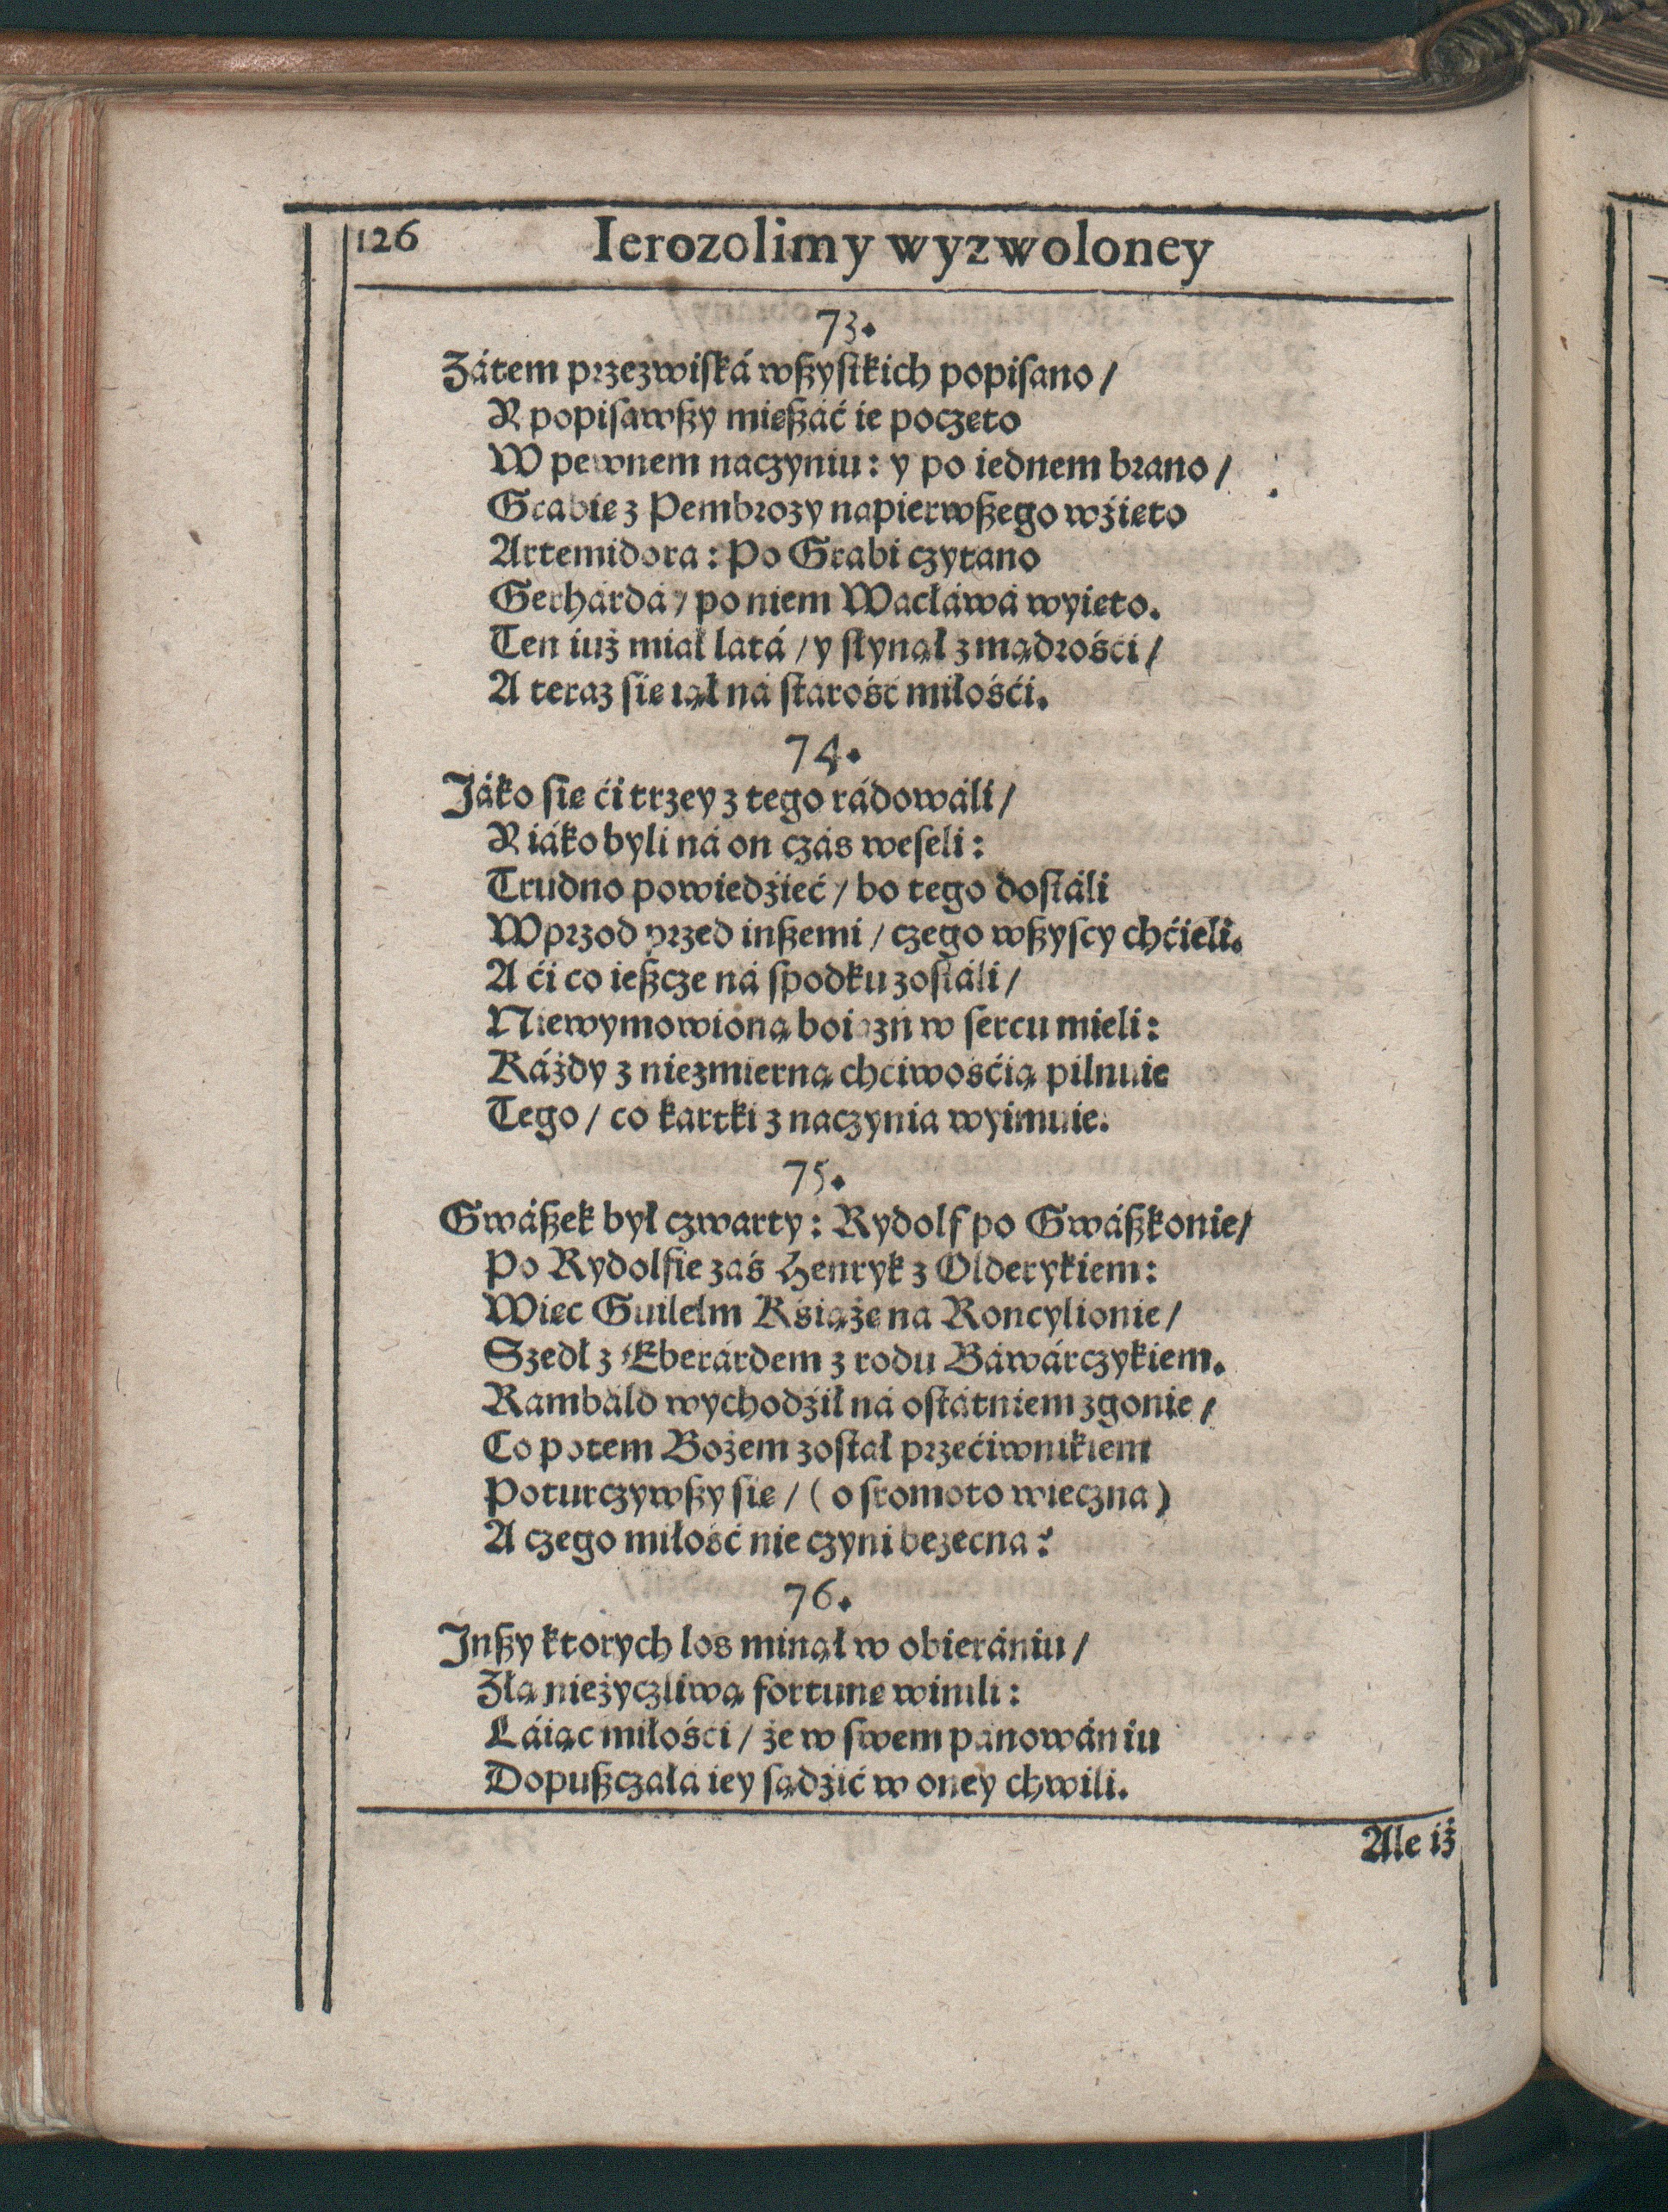 126 Ierozolimy wyzwoloney
73.
Zátem przezwiſká wßyſtkich popiſano /
Y popiſawßy mießáć ie poczęto
W pewnem naczyniu: y po iednem brano /
Grabię z Pembrozy napierwßego wźięto
Artemidora: Po Grabi czytano
Gerhárdá / po niem Wacłáwá wyięto.
Ten iuż miał látá / y ſłynął z mądrośći /
A teraz ſię iął ná ſtarość miłośći.
74.
Jáko ſię ći trzey z tego rádowáli /
Y iáko byli ná on czás weſeli:
Trudno powiedźieć / bo tego doſtáli
Wprzod przed inßemi / czego wßyſcy chćieli.
A ći co ießcze ná ſpodku zoſtáli /
Niewymowioną boiaźń w ſercu mieli:
Káżdy z niezmierną chćiwośćią pilnuie
Tego / co kartki z naczynia wyimuie.
75.
Gwáßek był czwarty: Rydolf po Gwáßkonie /
Po Rydolfie záś Henryk z Olderykiem:
Więc Guilelm Kśiążę na Roncylionie /
Szedł z Eberárdem z rodu Báwárczykiem.
Rambáld wychodźił ná oſtátniem zgonie /
Co potem Bożem zoſtał przećiwnikiem
Poturczywßy ſię / ( o ſromoto wieczna )
A czego miłość nie czyni bezecna?
76.
Jnßy ktorych los minął w obierániu /
Złą nieżyczliwą fortunę winili:
Łáiąc miłośći / że w ſwem pánowániu
Dopußczáła iey ſądźić w oney chwili.
Ale iż